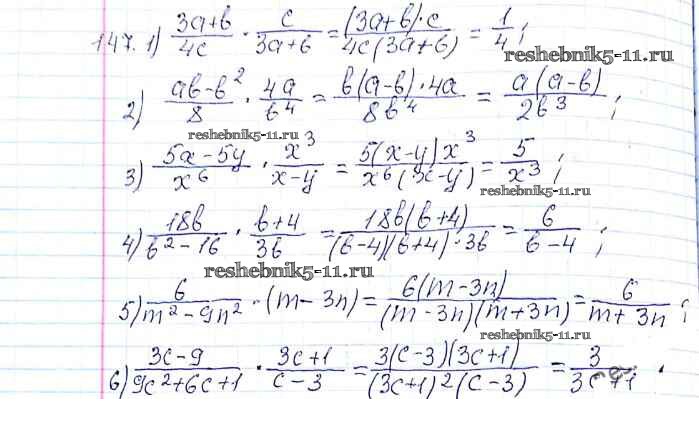 147. 1) (3a+b)/(4c) · c/(3a+b) = ((3a+b)·c)/(4c(3a+b)) = 1/4;
reshebnik5-11.ru
2) (ab-b²)/8 · 4a/b⁴ = (b(a-b)·4a)/(8b⁴) = (a(a-b))/(2b³);
reshebnik5-11.ru
3) (5x-5y)/x⁶ · x³/(x-y) = (5(x-y)x³)/(x⁶(x-y)) = 5/x³;
reshebnik5-11.ru
4) 18b/(b²-16) · (b+4)/(3b) = (18b(b+4))/((b-4)(b+4)·3b) = 6/(b-4);
reshebnik5-11.ru
5) 6/(m²-9n²) · (m-3n) = (6(m-3n))/((m-3n)(m+3n)) = 6/(m+3n);
reshebnik5-11.ru
6) (3c-9)/(9c²+6c+1) · (3c+1)/(c-3) = (3(c-3)(3c+1))/((3c+1)²(c-3)) = 3/(3c+1).